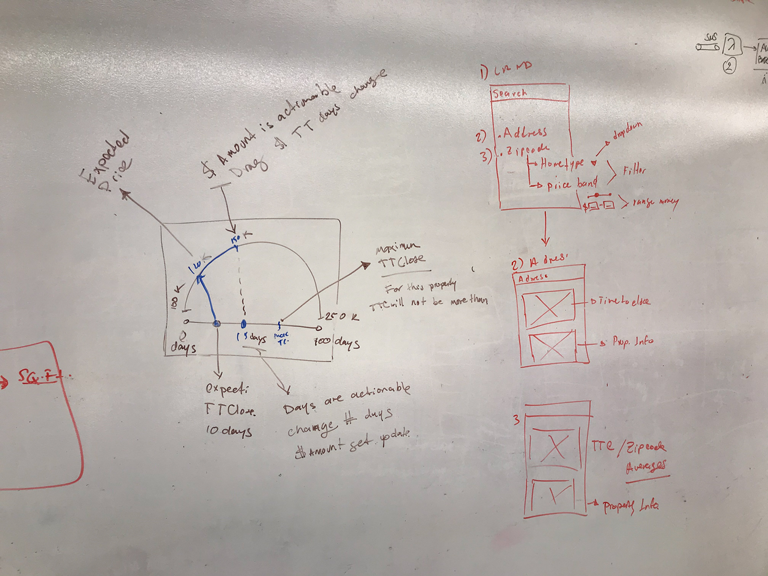 $ Amount is actionable
Drag $ TT days change
Expected
Price
100 K
120 K
150 K
250 K
0
days
15 days
max
100 days
maximum
TTClose
For this property
TTC will not be more than
TTClose
10 days
Days are actionable
change # days
$ Amount get update
SQFt.
1)
Search
2) . Address
3) . Zipcode
Hometype
dropdown
price band
Filter
$
range money
2) Adress
Adress
Time to close
Prop. Info
3
TTC / Zipcode
Averages
Property Info
SNS
λ
2